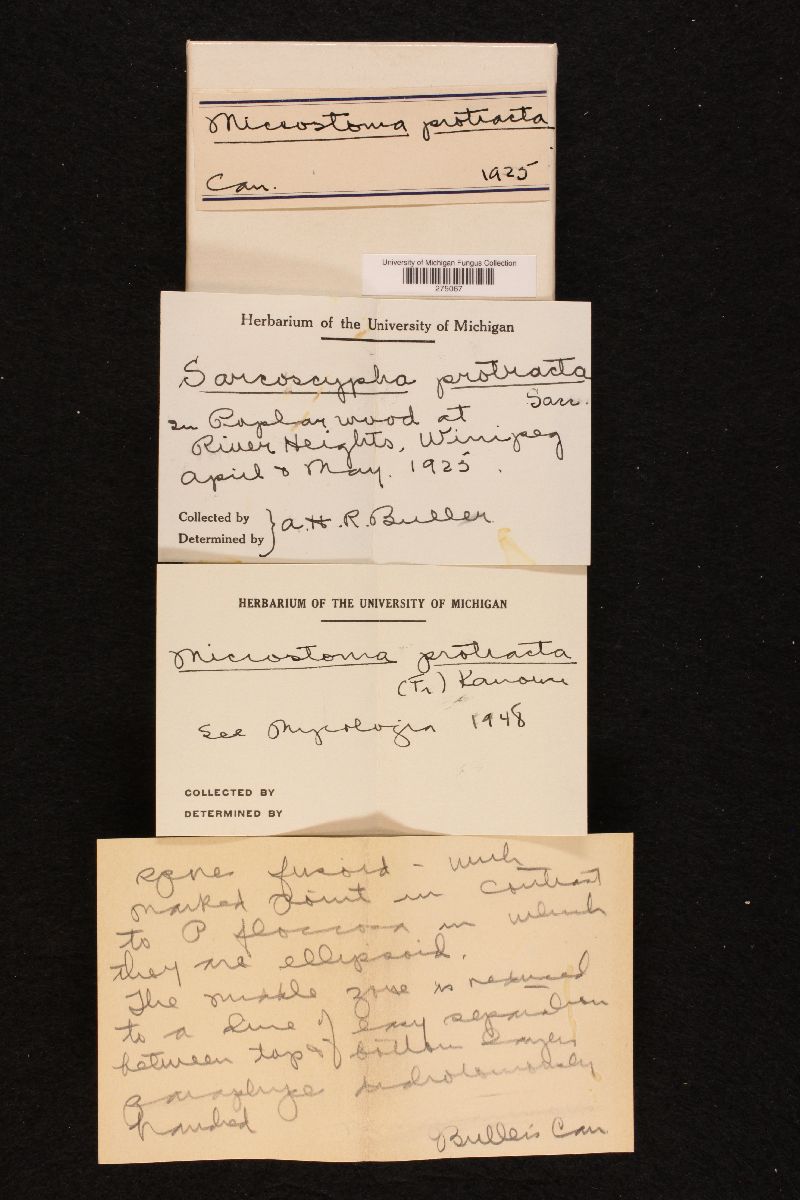 Microstoma protracta
Can. 1925
University of Michigan Fungus Collection
275067
Herbarium of the University of Michigan
Sarcoscypha protracta
Sacc.
on Poplar wood at
River Heights, Winipeg
April & May. 1925.
Collected by
Determined by } A.H.R. Buller
HERBARIUM OF THE UNIVERSITY OF MICHIGAN
Microstoma protracta
(Fr) Kanouse
See Mycologia 1948
COLLECTED BY
DETERMINED BY
fusoid - with
marked point in contrast
to P floccosa in which
they are ellipsoid.
The middle zone is reduced
to a line of easy separation
between top & bottom layers
paraphyses
Buller's Can